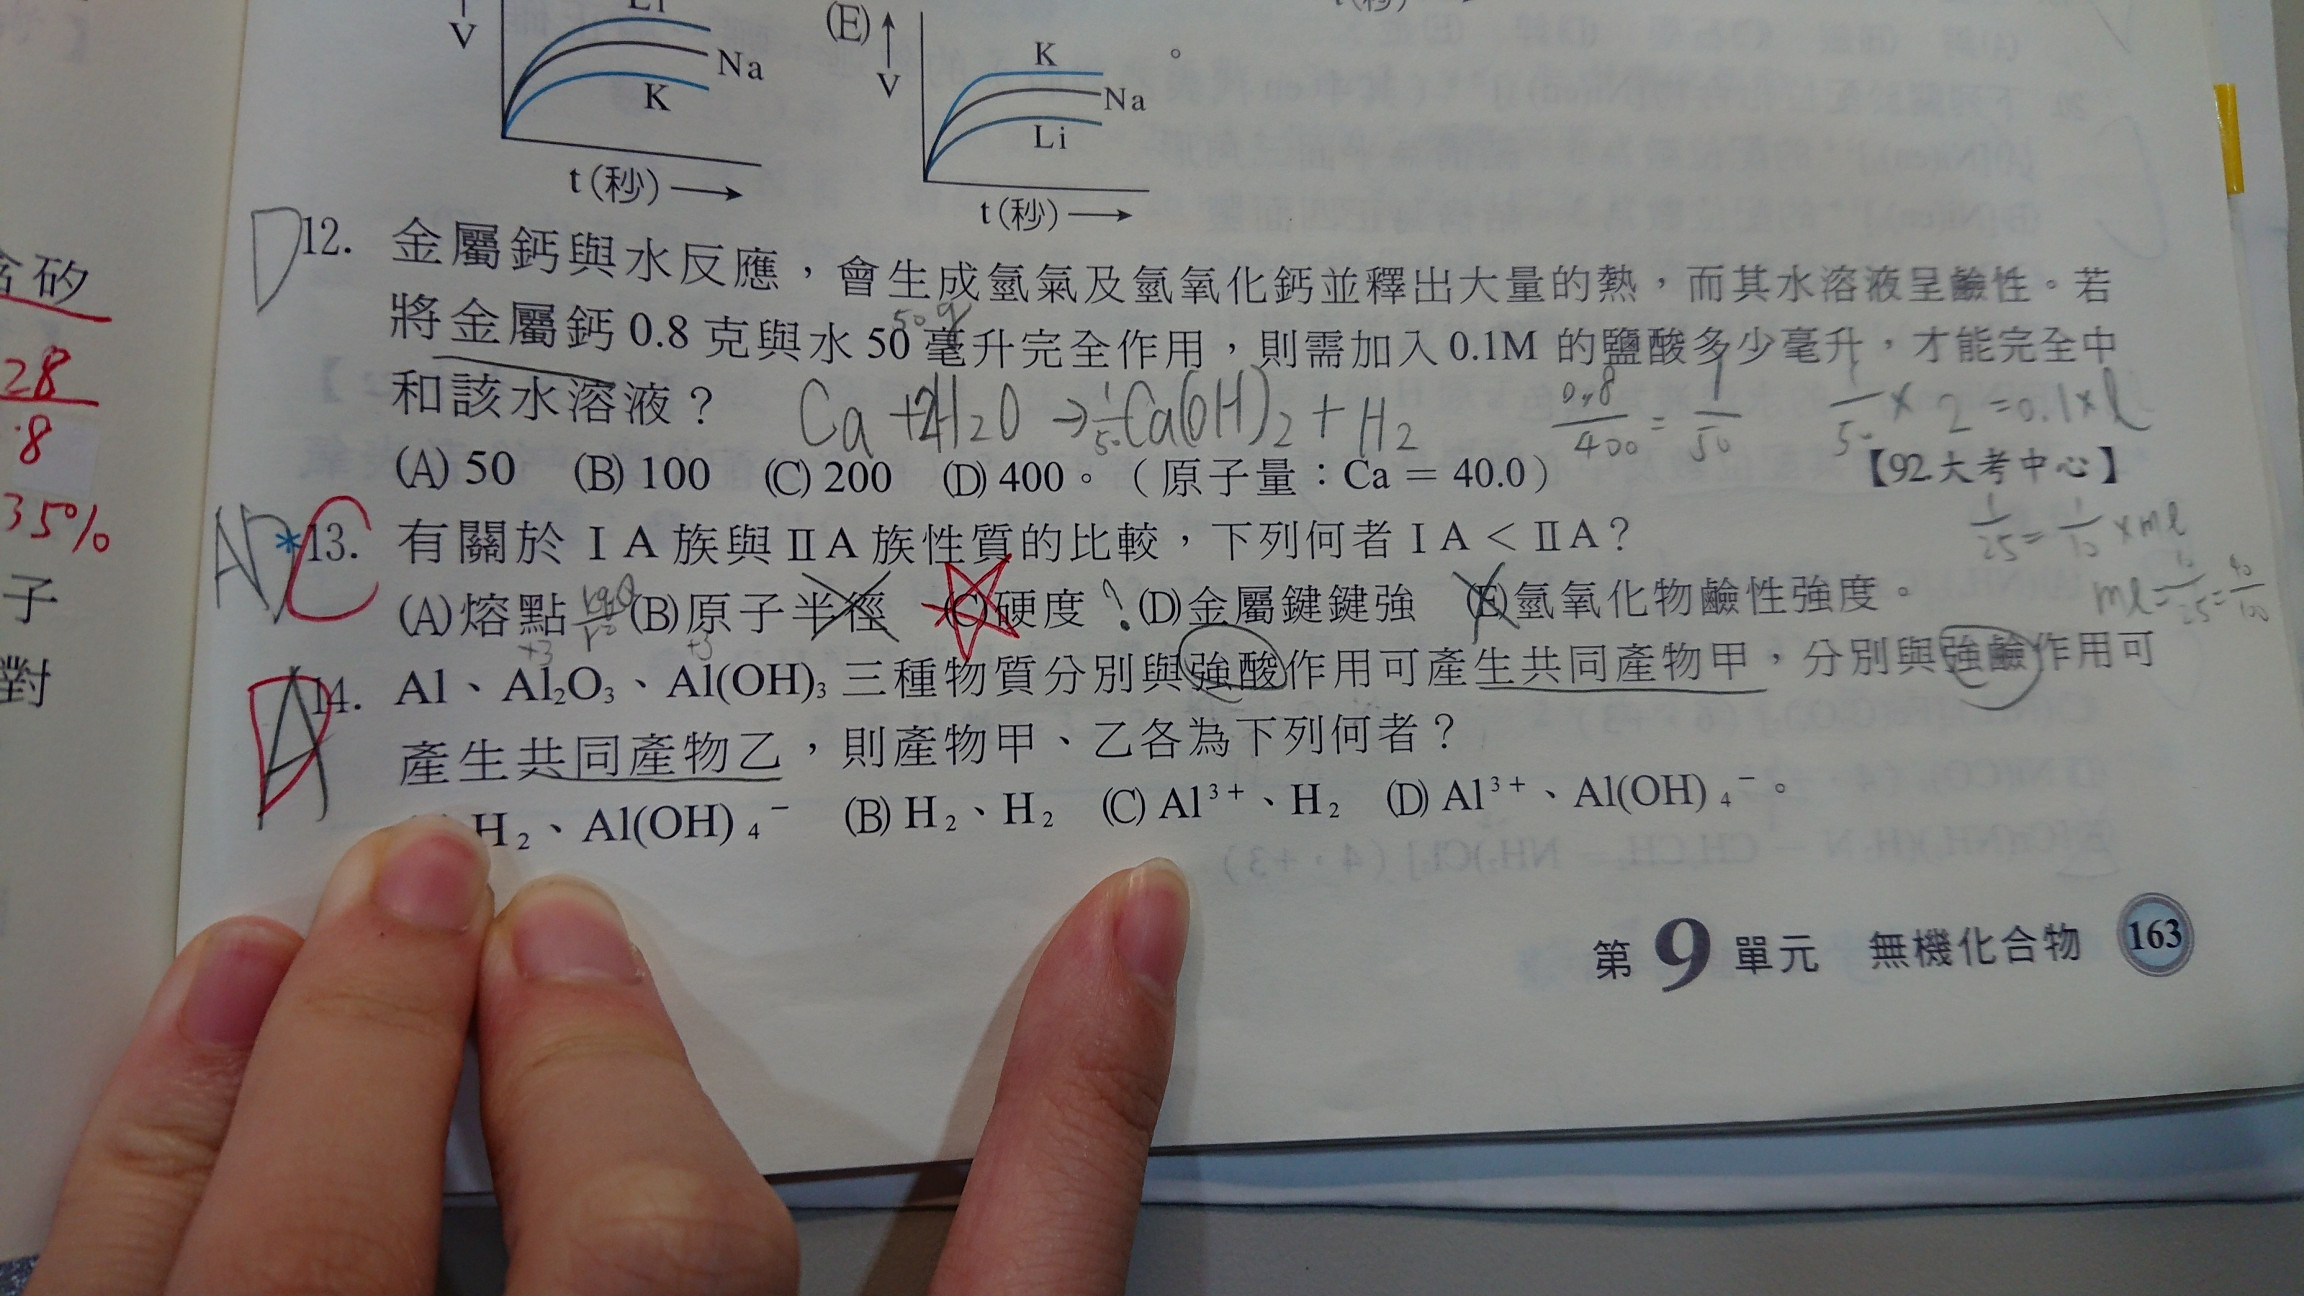 Li
V
Na
K
t(秒)
(E)
V
K
Na
Li
t(秒)
。
t(秒)
含矽
28
.8
35%
子
對
D 12. 金屬鈣與水反應，會生成氫氣及氫氧化鈣並釋出大量的熱，而其水溶液呈鹼性。若
50g
將金屬鈣 0.8 克與水 50 毫升完全作用，則需加入 0.1M 的鹽酸多少毫升，才能完全中
和該水溶液？ Ca + 2H2O → 1/50 Ca(OH)2 + H2 0.8/400 = 1/50 1/50 × 2 = 0.1 × l
(A) 50 (B) 100 (C) 200 (D) 400。（原子量：Ca = 40.0） 【92.大考中心】
1/25 = 1/10 × ml
C *13. 有關於 ⅠA 族與 ⅡA 族性質的比較，下列何者 ⅠA < ⅡA？
(A)熔點 (B)原子半徑 (C)硬度 ? (D)金屬鍵鍵強 (E)氫氧化物鹼性強度。
ml = 10/25 = 40/100
+3 +3
D A 14. Al、Al2O3、Al(OH)3 三種物質分別與強酸作用可產生共同產物甲，分別與強鹼作用可
產生共同產物乙，則產物甲、乙各為下列何者？
H2、Al(OH)4− (B) H2、H2 (C) Al3+、H2 (D) Al3+、Al(OH)4−。
第 9 單元 無機化合物 163